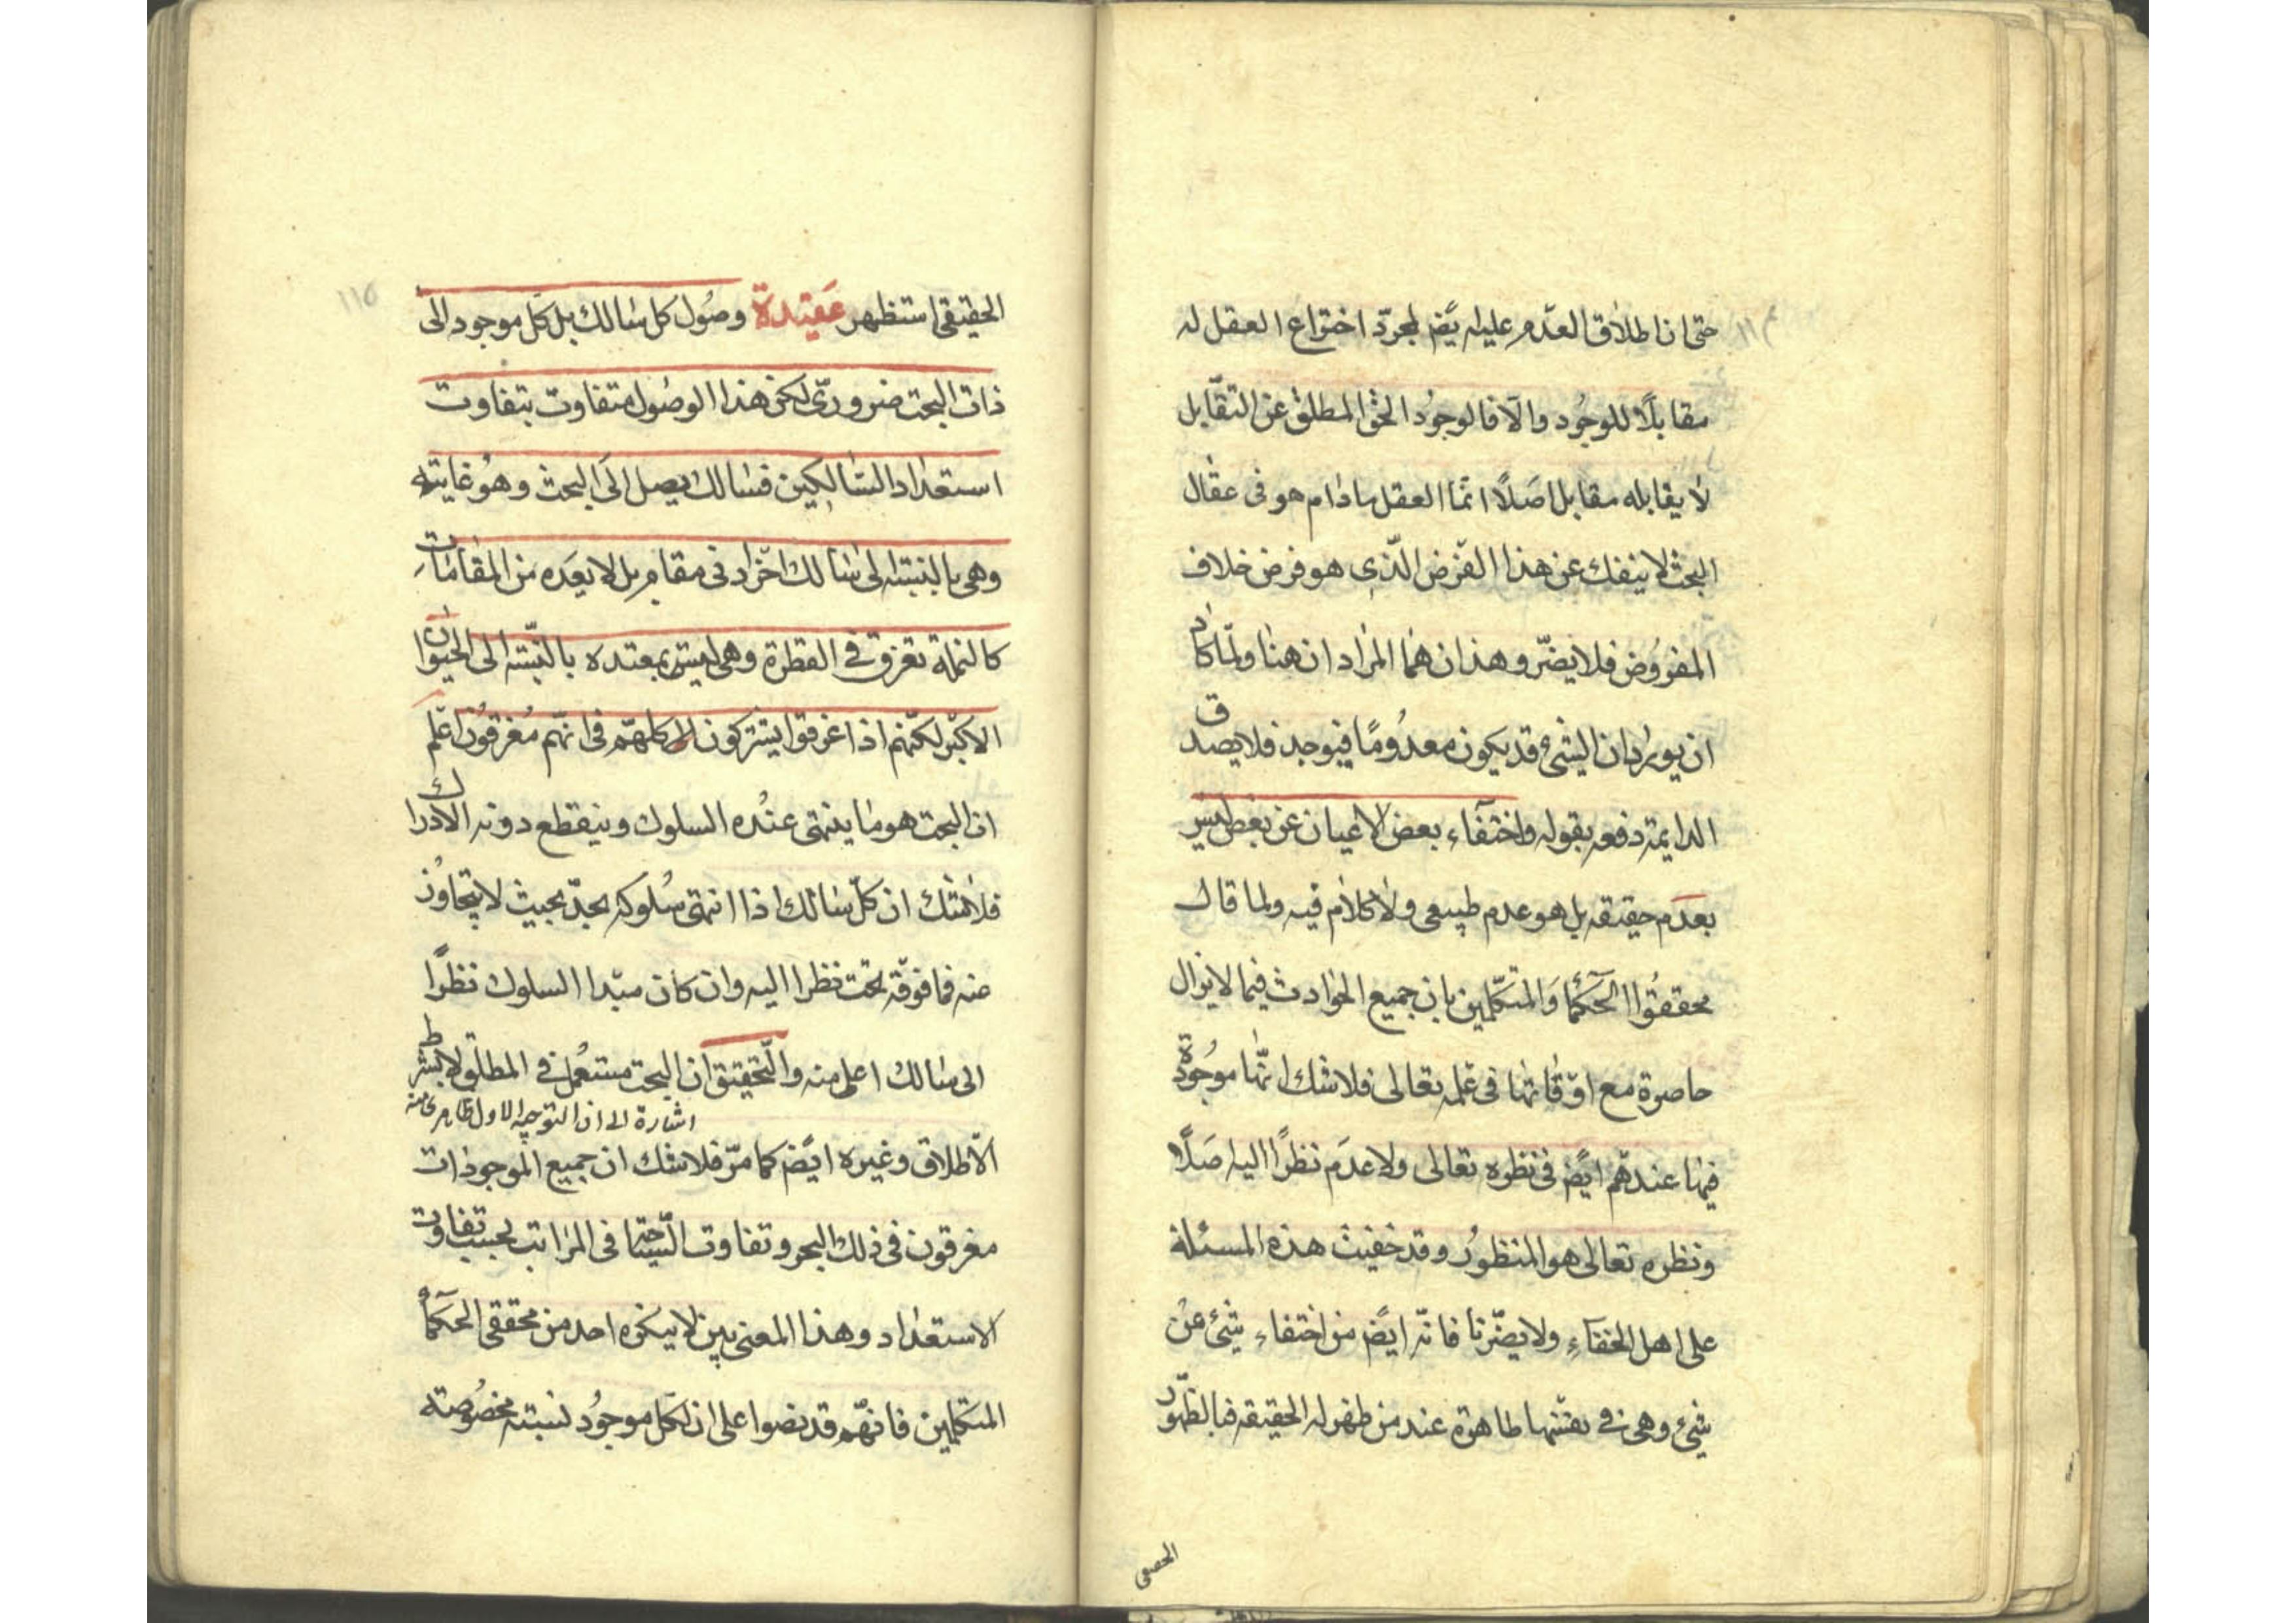 حتى ان اطلاق العدم عليه ايضً لمجرّد اختراع العقل له
مقابلًا للوجُود والّا فالوجوُد الحق المطلق عن التقّابل
لا يقابله مقابل اصَلًا انمّا العقل مادام هو فى عقال
البحث لا ينفك عن هذا الفرض الّذى هو فرض خلاف
المفرُوض فلا يضرّ وهذان همُا المرُاد ان هنا ولمّا كاد
ان يورد ان الشئ قد يكون معدُومًا فيوجد فلا يصدق
الدايمة دفعه بقوله واختفآء بعض الاعيان عن بعض ليس
بعدَم حقيقه بل هو عدم طبيعى ولا كلام فيه ولما قال
محققوُا الحكمآ وَالمتكلّمين بان جميع الحوادث فيما لا يزال
حاصرة مع اوقاتها فى علمه تعالى فلا شك انهّا موجُودة
فيها عندهم ايضً فى نظره تعالى ولا عدَم نظرًا اليه اصَلًا
ونظره تعالى هو المنظورُ وقد خفيت هذه المسئلة
على اهل الخفآءِ ولا يضّرنا فانّه ايضً من اختفاء شئ عن
شئ وهى فى نفسها ظاهرة عند من ظهر له الحقيقه فبالظهّور
الحقيقى
الحقيقى استظهر عَقيدة وصُول كل سالك بل كلّ موجود الى
ذات البحت ضرورىّ لكن هذا الوصُول متفاوت بتفاوت
استعداد السّالكين فسالك يصل الى البحت وهوُ غايته
وهى بالنسبة الى سالك اخرَ ادنى مقام بل لا يعَده من المقامات
كالنملة تغرق فى القطرة وهى ليست بمعتده بالنّسبة الى الحيوان
الاكبر لكنّهم اذا غرقوا يشتركون كلهّم فى انهّم مُغرقوُن اعلم
ان البحت هو ما ينتهى عنُده السلوك وينقطع دونه الادراك
فلا شك ان كلّ سالك اذا انتهى سُلوكه بحدّ بحيث لا يتجاوُز
عنه فما فوقه بحت نظرا اليه وان كان مبدا السلوك نظرًا
الى سالك اعلى منه والتّحقيق ان البحت مستعمل فى المطلق لا بشرط
اشارة الى ان التوجيه الاول ظاهرى منه
الاطلاق وغيره ايضً كما مرّ فلا شك ان جميع الموجودات
مغرقون فى ذلك البحر وتفاوت السّباحة فى المراتب بحسب تفاوت
الاستعداد وهذا المعنى بين لا ينكره احد من محققى الحكمآء
المتكلمين فانهّم قد نصوا على ان لكل موجوُد نسبته مخصُوصة